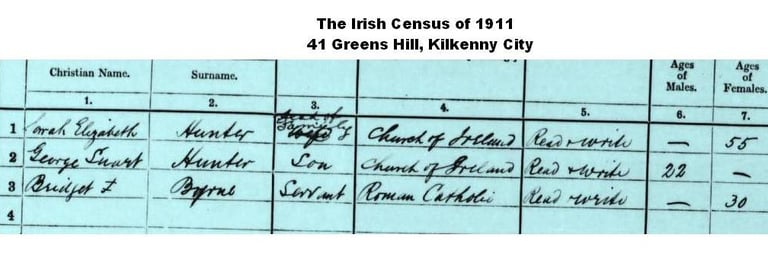 The Irish Census of 1911
41 Greens Hill, Kilkenny City
Christian Name. Surname. Ages of Males. Ages of Females.
1. 2. 3. 4. 5. 6. 7.
Head of Family
1 Sarah Elizabeth Hunter Wife Church of Ireland Read + write — 55
2 George Stuart Hunter Son Church of Ireland Read + write 22 —
3 Bridget Byrne Servant Roman Catholic Read + write — 30
4